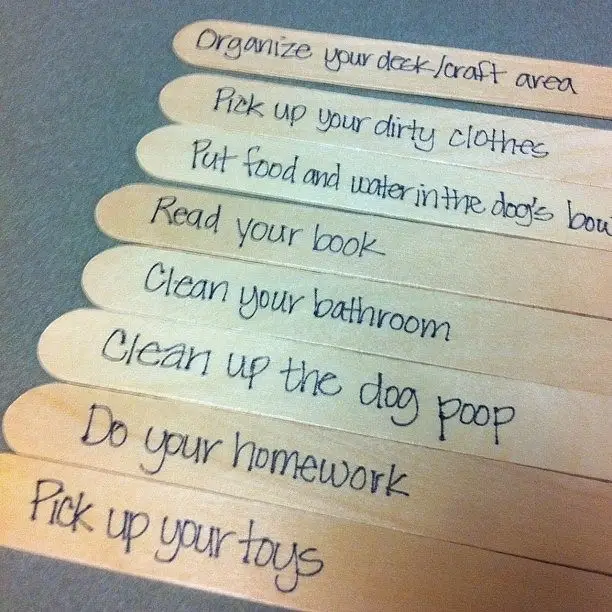 Organize your desk/craft area
Pick up your dirty clothes
Put food and water in the dog's
Read your book
Clean your bathroom
Clean up the dog poop
Do your homework
Pick up your toys